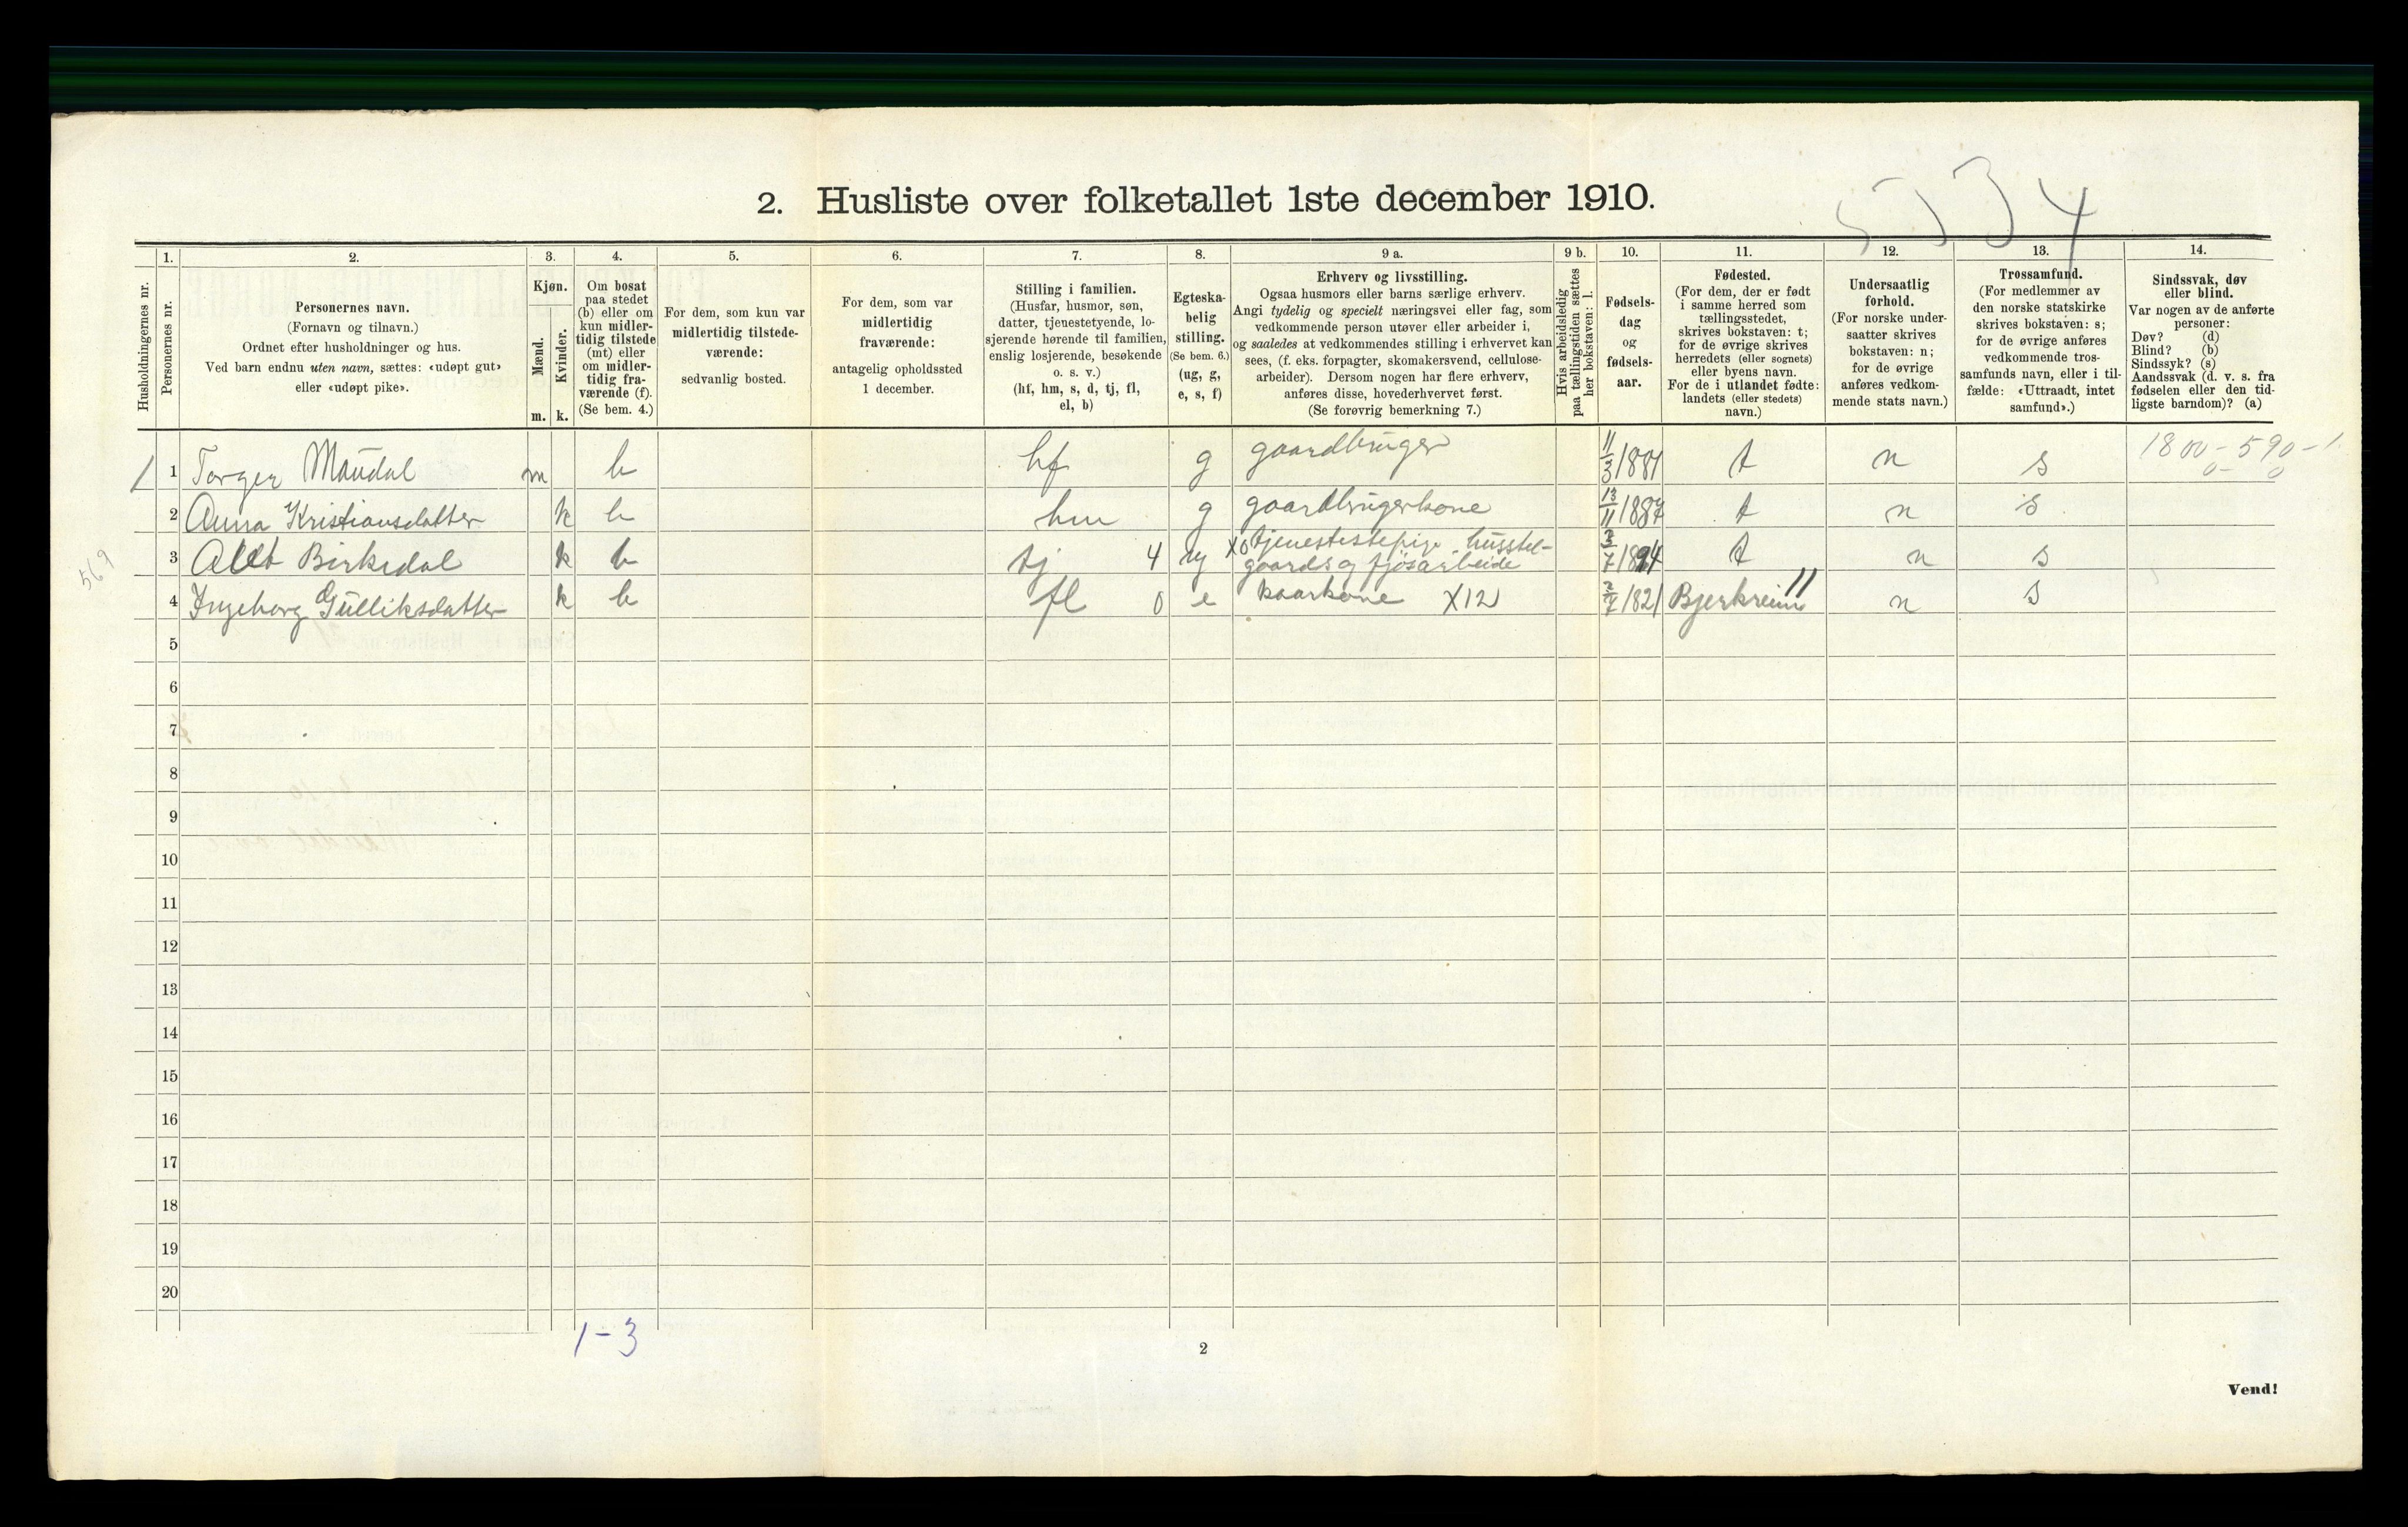 5334
2. Husliste over folketallet 1ste december 1910.
Husholdningernes nr.
1.
Personernes nr.
2.
Personernes navn.
(Fornavn og tilnavn.)
Ordnet efter husholdninger og hus.
Ved barn endnu uten navn, sættes: «udøpt gut»
eller «udøpt pike».
3.
Kjøn.
Mænd.
Kvinder.
m. k.
4.
Om bosat
paa stedet
(b) eller om
kun midler-
tidig tilstede
(mt) eller
om midler-
tidig fra-
værende (f).
(Se bem. 4.)
5.
For dem, som kun var
midlertidig tilstede-
værende:
sedvanlig bosted.
6.
For dem, som var
midlertidig
fraværende:
antagelig opholdssted
1 december.
7.
Stilling i familien.
(Husfar, husmor, søn,
datter, tjenestetyende, lo-
sjerende hørende til familien,
enslig losjerende, besøkende
o. s. v.)
(hf, hm, s, d, tj, fl,
el, b)
8.
Egteska-
belig
stilling.
(Se bem. 6.)
(ug, g,
e, s, f)
9 a.
Erhverv og livsstilling.
Ogsaa husmors eller barns særlige erhverv.
Angi tydelig og specielt næringsvei eller fag, som
vedkommende person utøver eller arbeider i,
og saaledes at vedkommendes stilling i erhvervet kan
sees, (f. eks. forpagter, skomakersvend, cellulose-
arbeider). Dersom nogen har flere erhverv,
anføres disse, hovederhvervet først.
(Se forøvrig bemerkning 7.)
9 b.
Hvis arbeidsledig
paa tællingstiden sættes
her bokstaven: l.
10.
Fødsels-
dag
og
fødsels-
aar.
11.
Fødested.
(For dem, der er født
i samme herred som
tællingsstedet,
skrives bokstaven: t;
for de øvrige skrives
herredets (eller sognets)
eller byens navn.
For de i utlandet fødte:
landets (eller stedets)
navn.)
12.
Undersaatlig
forhold.
(For norske under-
saatter skrives
bokstaven: n;
for de øvrige
anføres vedkom-
mende stats navn.)
13.
Trossamfund.
(For medlemmer av
den norske statskirke
skrives bokstaven: s;
for de øvrige anføres
vedkommende tros-
samfunds navn, eller i til-
fælde: «Uttraadt, intet
samfund».)
14.
Sindssvak, døv
eller blind.
Var nogen av de anførte
personer:
Døv? (d)
Blind? (b)
Sindssyk? (s)
Aandssvak (d. v. s. fra
fødselen eller den tid-
ligste barndom)? (a)
1 1 Torger Maudal m b hf g gaardbruger 11/3 1881 t n s 1800-590-1
0-0
2 Anna Kristiansdatter k b hm g gaardbrugerkone 13/11 1887 t n s
3 Birkedal k b tj 4 ug X0 tjenestepige husstel-
gaards og fjøsarbeide 3/7 1894 t n s
4 Ingeborg Gulliksdatter k b fl 0 e kaarkone X12 1821 Bjerkreim 11 n s
569
5
6
7
8
9
10
11
12
13
14
15
16
17
18
19
20
1-3
2
Vend!